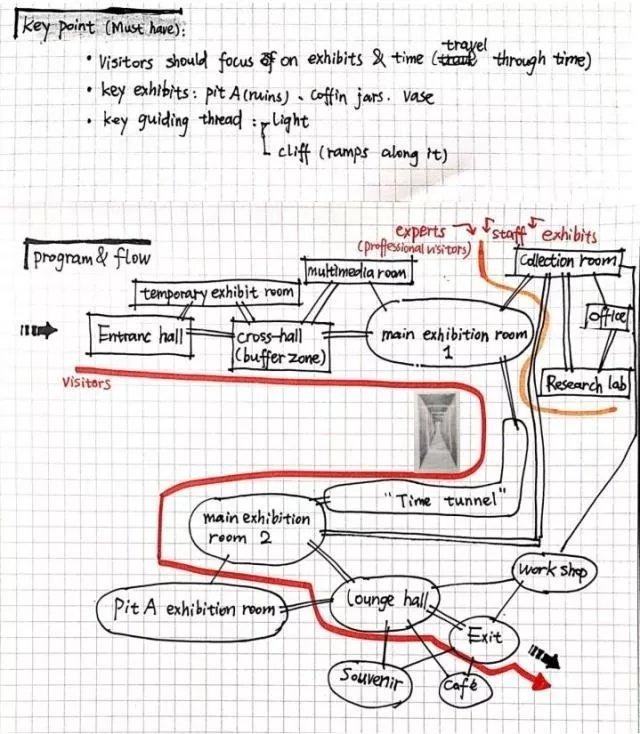 key point (Must have):
• Visitors should focus on exhibits & time (travel through time)
• key exhibits: pit A (ruins)、coffin jars. vase
• key guiding thread: Light
cliff (ramps along it)
program & flow
experts
(proffessional visitors)
staff
exhibits
Collection room
multimedia room
temporary exhibit room
office
Entranc hall
cross-hall
(buffer zone)
main exhibition room
1
Research lab
Visitors
"Time tunnel"
main exhibition
room 2
work shop
Lounge hall
Pit A exhibition room
Exit
Souvenir
Café